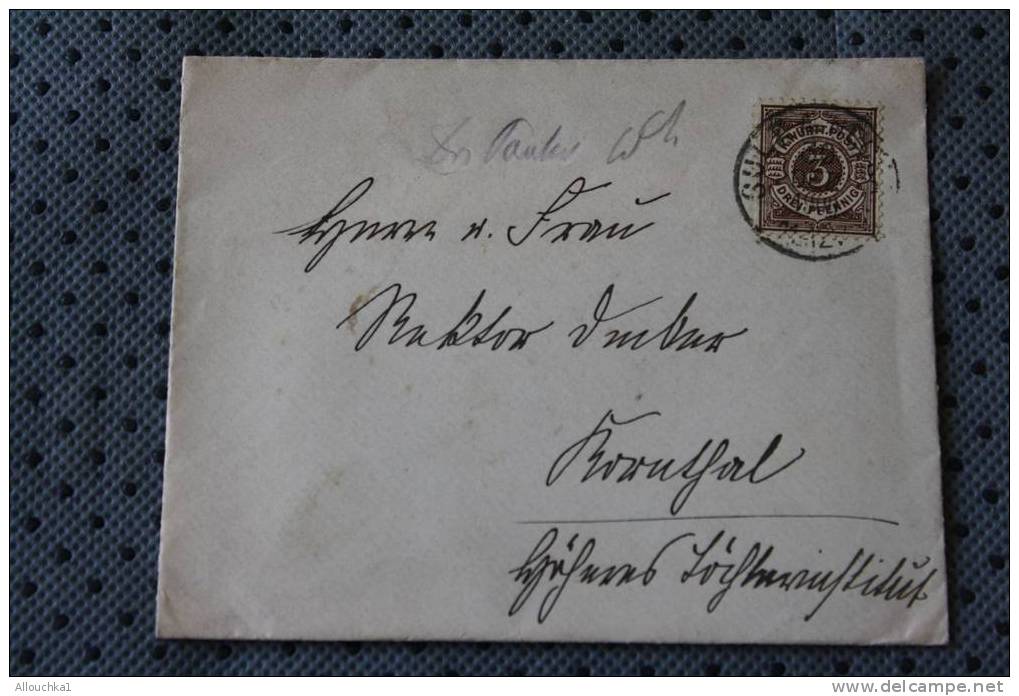 K. WÜRTT. POST
3
DREI PFENNIG
Herrn u. Frau
Rektor Decker
Kornthal
Höheres Töchterinstitut
Allouchka1
delcampe.net